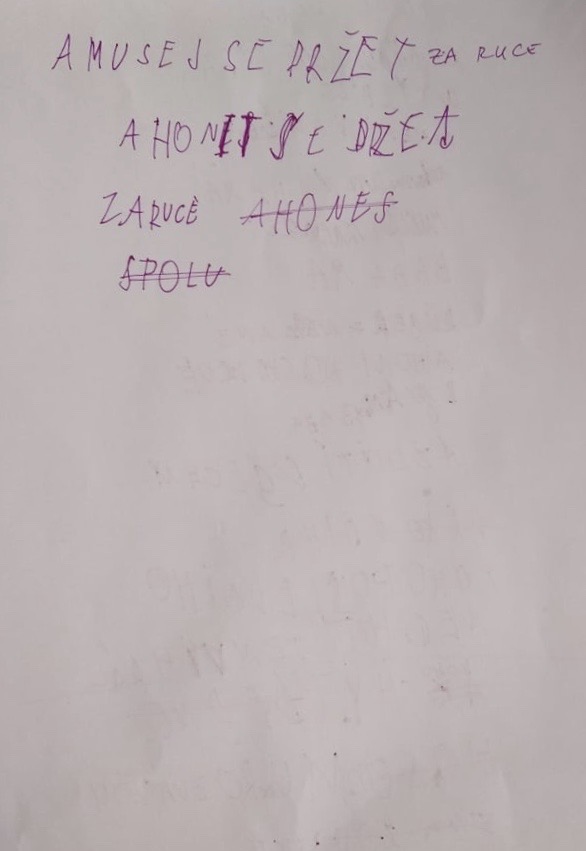 A MUSEJ SE DRŽET ZA RUCE
A HONIT SE DRŽET
ZA RUCE AHONES
SPOLU